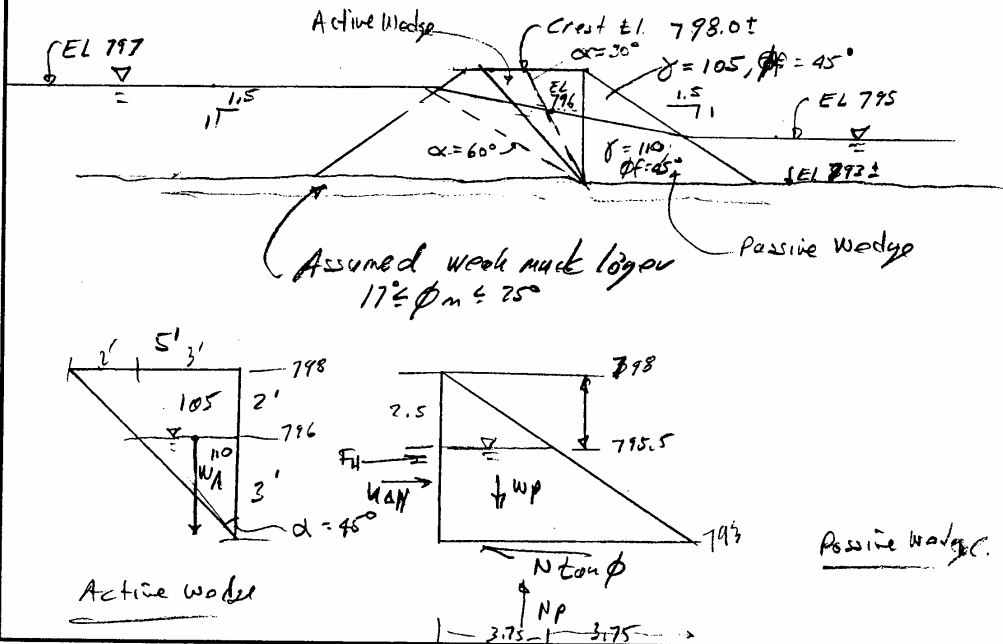 Active Wedge
Crest El. 798.0±
α=30°
EL 797
γ = 105, ϕf = 45°
1.5
1
EL 796
1.5
1
EL 795
α=60°
γ = 110
ϕf=45°
EL 793±
Passive Wedge
Assumed weak muck layer
17° ≤ ϕm ≤ 25°
5'
2' 3'
798
105
2'
796
110
WA
3'
α = 45°
Active wedge
798
2.5
795.5
FH
WP
793
N tan ϕ
NP
3.75 3.75
Passive Wedge.